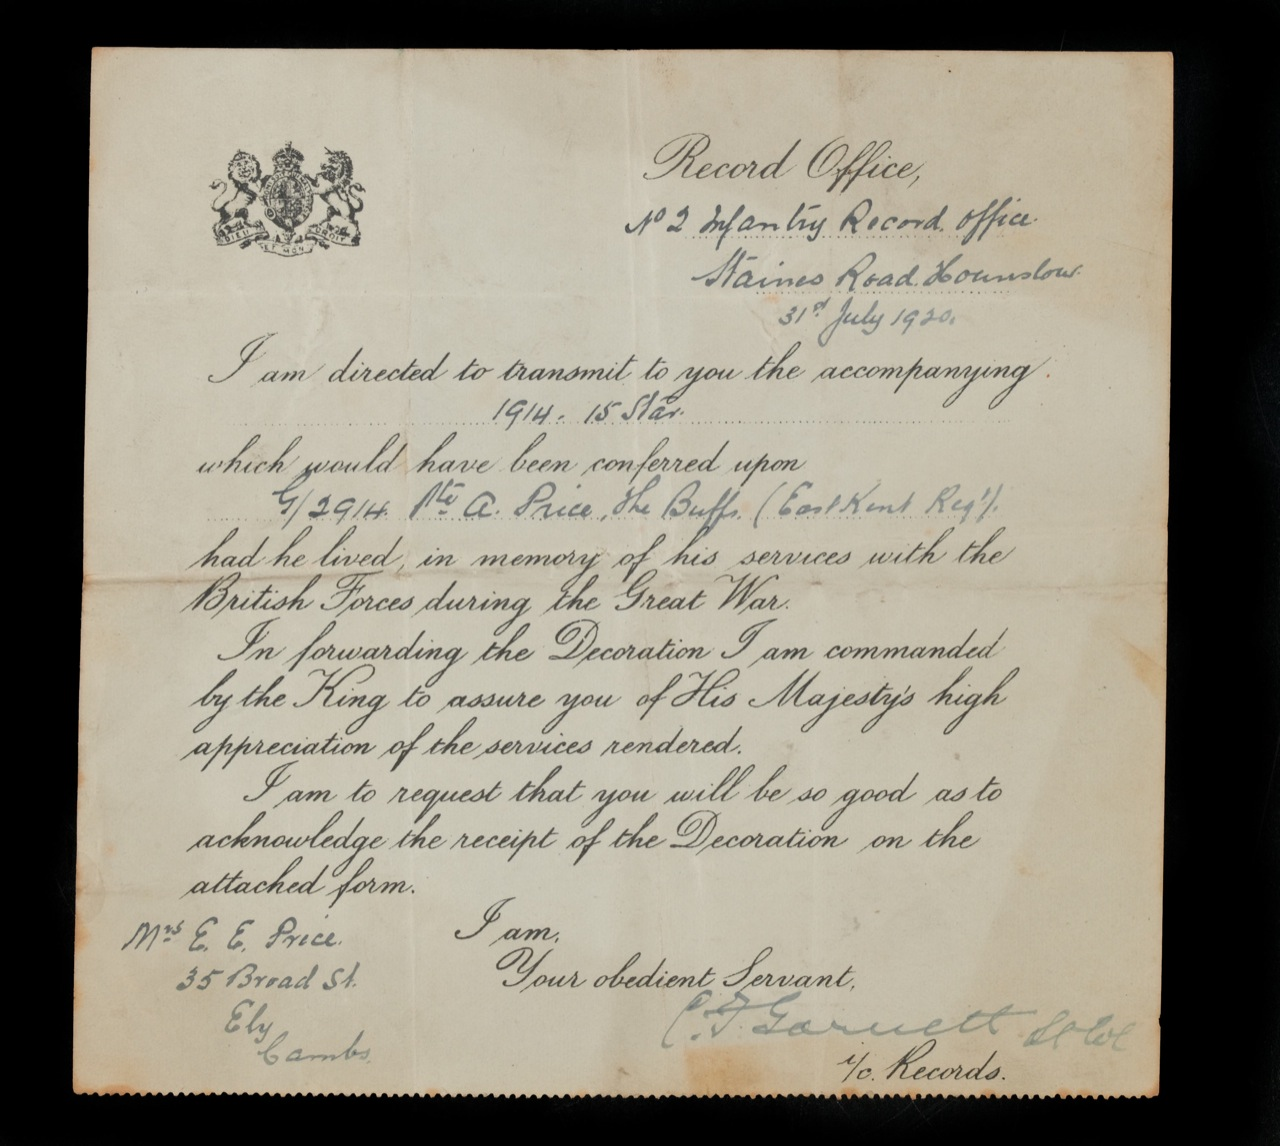 Record Office,
No 2 Infantry Record Office.
Staines Road Hounslow.
31st July 1920.
DIEU ET MON DROIT
I am directed to transmit to you the accompanying
1914. 15 Star.
which would have been conferred upon
G/2914 Pte A. Price, The Buffs. (East Kent Reg't).
had he lived, in memory of his services with the
British Forces during the Great War.
In forwarding the Decoration I am commanded
by the King to assure you of His Majesty's high
appreciation of the services rendered.
I am to request that you will be so good as to
acknowledge the receipt of the Decoration on the
attached form.
I am,
Your obedient Servant,
C. F. Garnett Lt Col
i/c. Records.
Mrs E. E. Price.
35 Broad St.
Ely
Cambs.